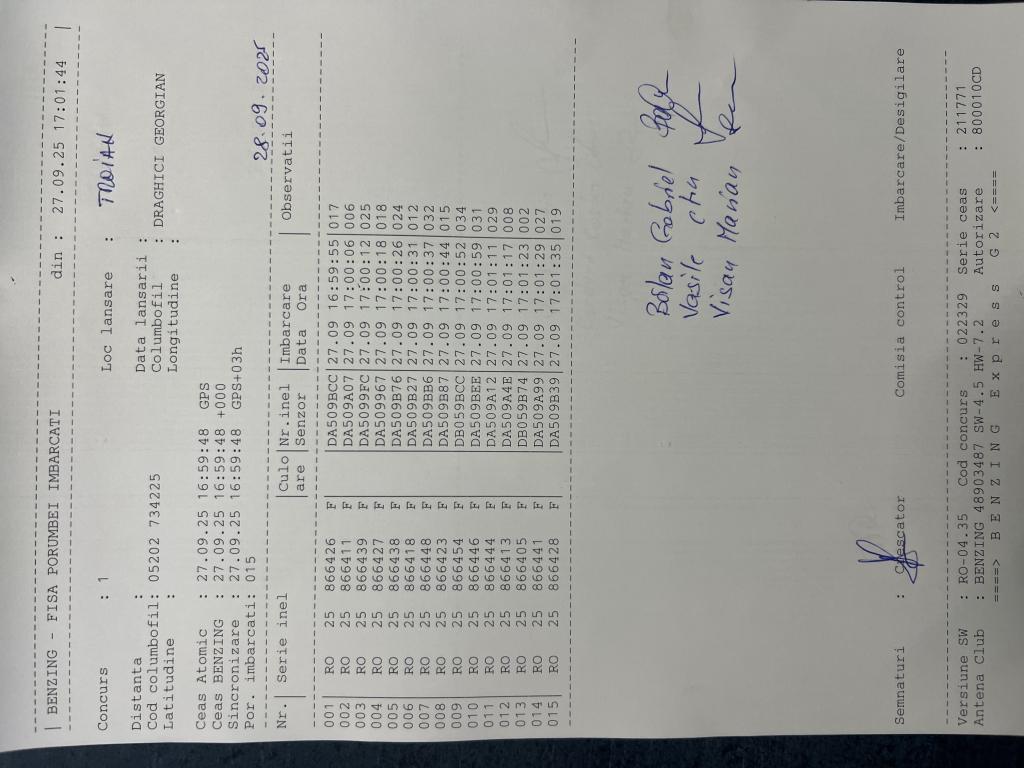 | BENZING - FISA PORUMBEI IMBARCATI din : 27.09.25 17:01:44 |
Concurs : 1 Loc lansare : TROIAN
Distanta : Data lansarii : 28.09.2025
Cod columbofil: 05202 734225 Columbofil : DRAGHICI GEORGIAN
Latitudine : Longitudine :
Ceas Atomic : 27.09.25 16:59:48 GPS
Ceas BENZING : 27.09.25 16:59:48 +000
Sincronizare : 27.09.25 16:59:48 GPS+03h
Por. imbarcati: 015
Nr.| Serie inel |Culo|Nr.inel |Imbarcare | Observatii
|are |Senzor |Data Ora |
001 | RO 25 866426 F |DA509BCC|27.09 16:59:55|017
002 | RO 25 866411 F |DA509A07|27.09 17:00:06|006
003 | RO 25 866439 F |DA5099FC|27.09 17:00:12|025
004 | RO 25 866427 F |DA509967|27.09 17:00:18|018
005 | RO 25 866438 F |DA509B76|27.09 17:00:26|024
006 | RO 25 866418 F |DA509B27|27.09 17:00:31|012
007 | RO 25 866448 F |DA509BB6|27.09 17:00:37|032
008 | RO 25 866423 F |DA509B87|27.09 17:00:44|015
009 | RO 25 866454 F |DB059BCC|27.09 17:00:52|034
010 | RO 25 866446 F |DA509BEE|27.09 17:00:59|031
011 | RO 25 866444 F |DA509A12|27.09 17:01:11|029
012 | RO 25 866413 F |DA509A4E|27.09 17:01:17|008
013 | RO 25 866405 F |DB059B74|27.09 17:01:23|002
014 | RO 25 866441 F |DA509A99|27.09 17:01:29|027
015 | RO 25 866428 F |DA509B39|27.09 17:01:35|019
Bălan Gabriel
Vasile Ctin
Visan Marian
Semnaturi : Crescator Comisia control Imbarcare/Desigilare
Versiune SW : RO-04.35 Cod concurs : 022329 Serie ceas : 211771
Antena Club : BENZING 48903487 SW-4.5 HW-7.2 Autorizare : 800010CD
====> B E N Z I N G E x p r e s s G 2 <====